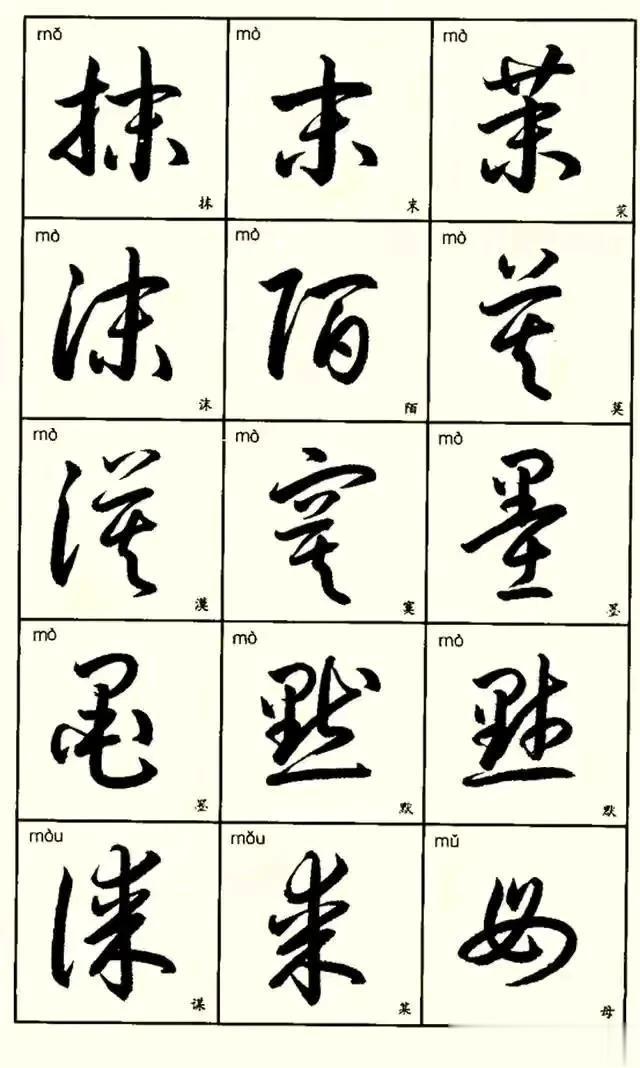 mǒ mò mò
抹 末 茉
抹 末 茉
mò mò mò
沫 陌 莫
沫 陌 莫
mò mò mò
漠 寞 墨
漠 寞 墨
mò mò mò
墨 默 默
墨 默 默
mòu mǒu mǔ
谋 某 母
谋 某 母